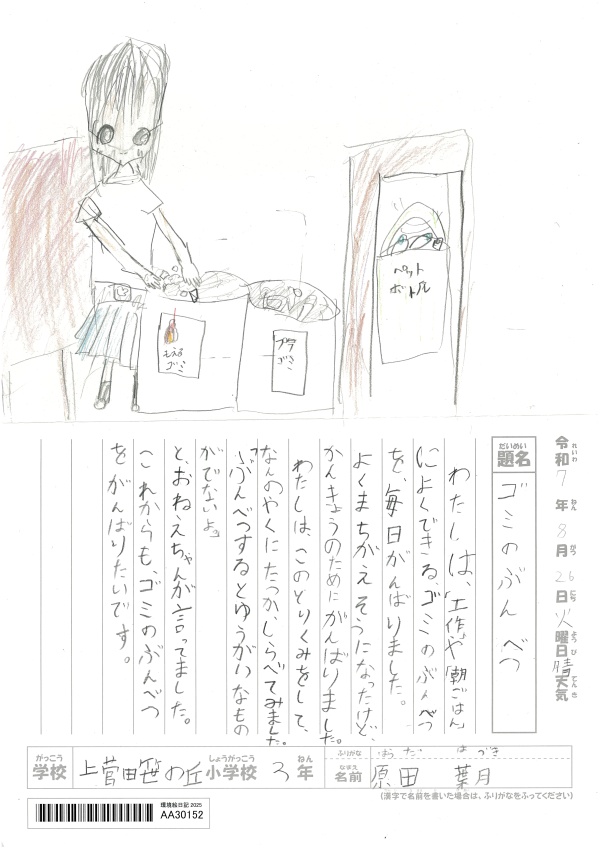 もえる
ゴミ
プラ
ゴミ
ペット
ボトル
令和7年8月26日火曜日晴天気
れいわ ねん がつ にち ようび てんき
だいめい
題名
ゴミのぶんべつ
わたしは、「工作」や「朝ごはん」
によくできる、ゴミのぶんべつ
を、毎日がんばりました。
よくまちがえそうになったけど、
かんきょうのためにがんばりました。
わたしは、このとりくみをして、
なんのやくにたつか、しらべてみました。
「ぶんべつするとゆうがいなもの
がでないよ」
と、おねえちゃんが言ってました。
これからも、ゴミのぶんべつ
をがんばりたいです。
がっこう しょうがっこう ねん
学校 上菅田笹の丘小学校 3年
ふりがな はらだ はづき
なまえ
名前 原田 葉月
(漢字で名前を書いた場合は、ふりがなをふってください)
環境絵日記 2025
AA30152